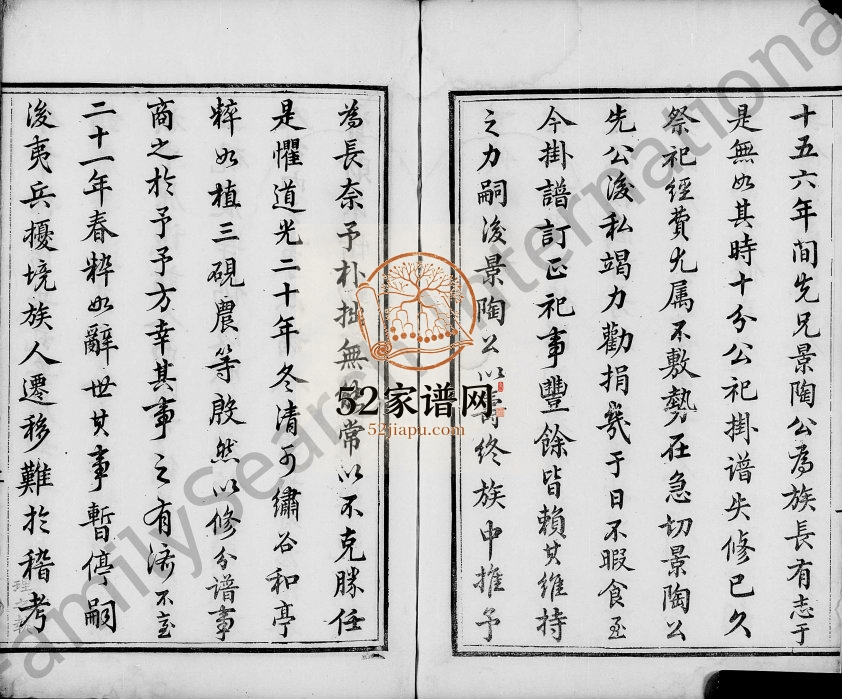 十五六年間先兄景陶公為族長有志于
是無如其時十分公祀掛譜失修已久
祭祀經費尤属不敷勢在急切景陶公
先公後私竭力勸捐幾于日不暇食至
今掛譜訂正祀事豐餘皆賴其維持
之力嗣後景陶公以壽終族中推予
為長奈予朴拙無常以不克勝任
是懼道光二十年冬清可繡谷和亭
粹如植三硯農等殷然以修分谱事
商之於予予方幸其事之有濟不意
二十一年春粹如辭世其事暫停嗣
後夷兵擾境族人遷移難於稽考
52家谱网
52jiapu.com
FamilySearch International